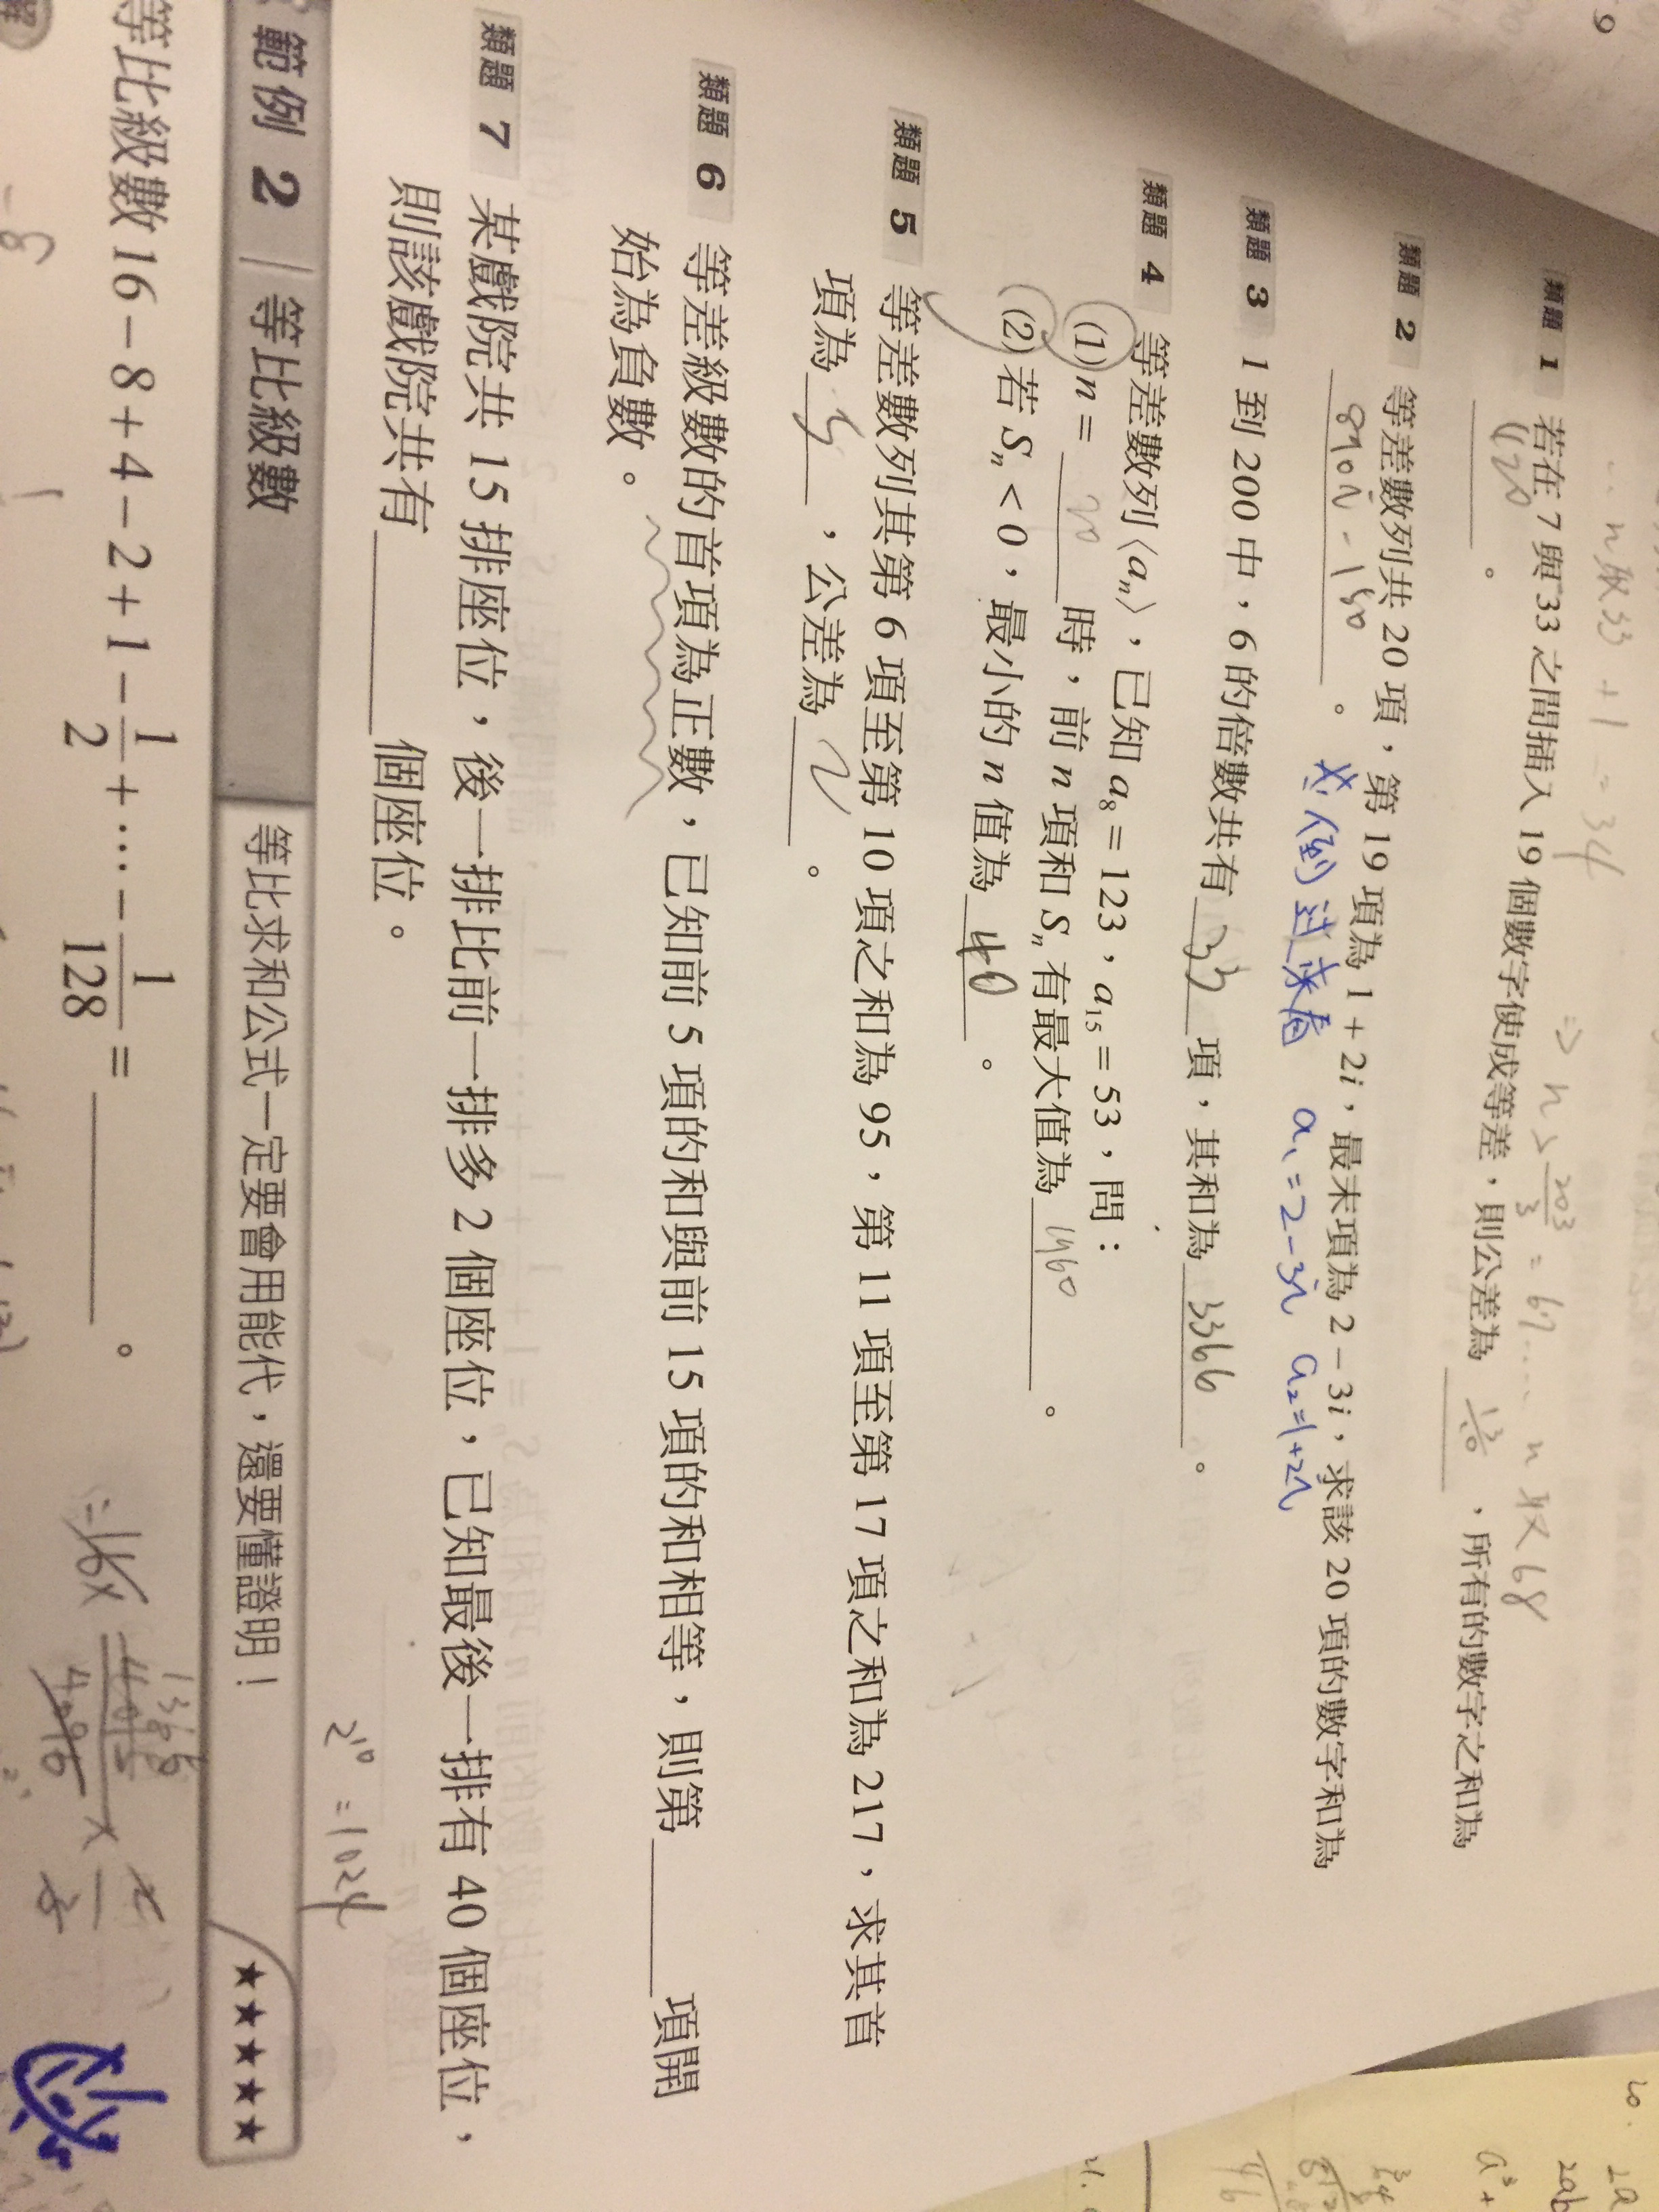 9
∴ n取33 + 1 = 34
⇒ n > 203/3 = 67.… n取68
類題 1 若在 7 與 33 之間插入 19 個數字使成等差，則公差為 13/10 ，所有的數字之和為
420 。
類題 2 等差數列共 20 項，第 19 項為 1 + 2i，最末項為 2 − 3i，求該 20 項的數字和為
890i - 150 。 ※倒过來看 a₁=2-3i a₂=1+2i
類題 3 1 到 200 中，6 的倍數共有 33 項，其和為 3366 。
類題 4 等差數列⟨aₙ⟩，已知 a₈ = 123，a₁₅ = 53，問：
(1) n = 20 時，前 n 項和 Sₙ 有最大值為 1960 。
(2) 若 Sₙ < 0，最小的 n 值為 40 。
類題 5 等差數列其第 6 項至第 10 項之和為 95，第 11 項至第 17 項之和為 217，求其首
項為 5 ，公差為 2 。
類題 6 等差級數的首項為正數，已知前 5 項的和與前 15 項的和相等，則第 項開
始為負數。
類題 7 某戲院共 15 排座位，後一排比前一排多 2 個座位，已知最後一排有 40 個座位，
則該戲院共有 個座位。
2¹⁰ = 1024
範例 2 等比級數 等比求和公式一定要會用能代，還要懂證明！ ★★★★★
等比級數 16 − 8 + 4 − 2 + 1 − 1/2 + … − 1/128 = 。